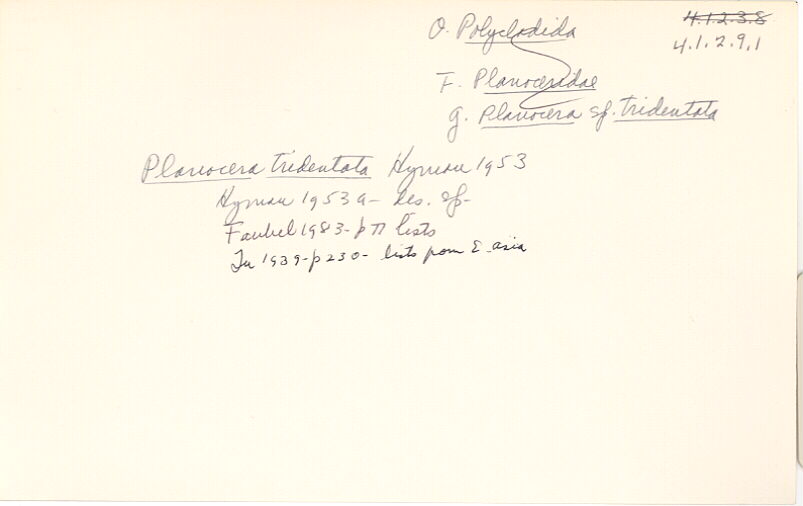 O. Polycladida
4.1.2.3.8
4.1.2.9.1
F. Planoceridae
g. Planocera sp. tridentata
Planocera tridentata Hyman 1953
Hyman 1953a- des. sp-
Faubel 1983- p 77 lists
Tu 1939-p230- lists from E. asia